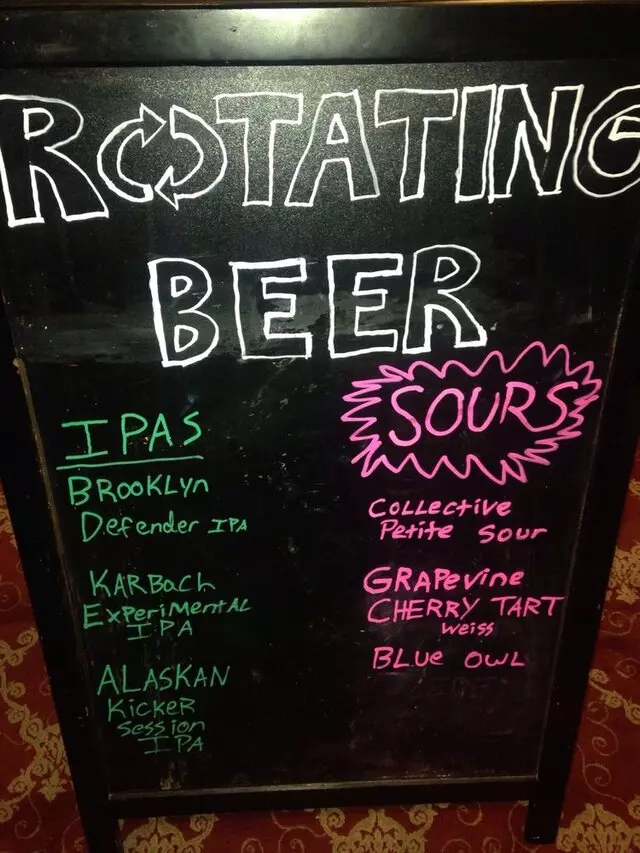 ROTATING
BEER
IPAS
BROOKLyn
Defender IPA
KARBach
ExPeriMentAL
IPA
ALASKAN
KicKeR
Session
IPA
SOURS
COLLective
Petite Sour
GRAPevine
CHERRY TART
weiss
BLue OWL